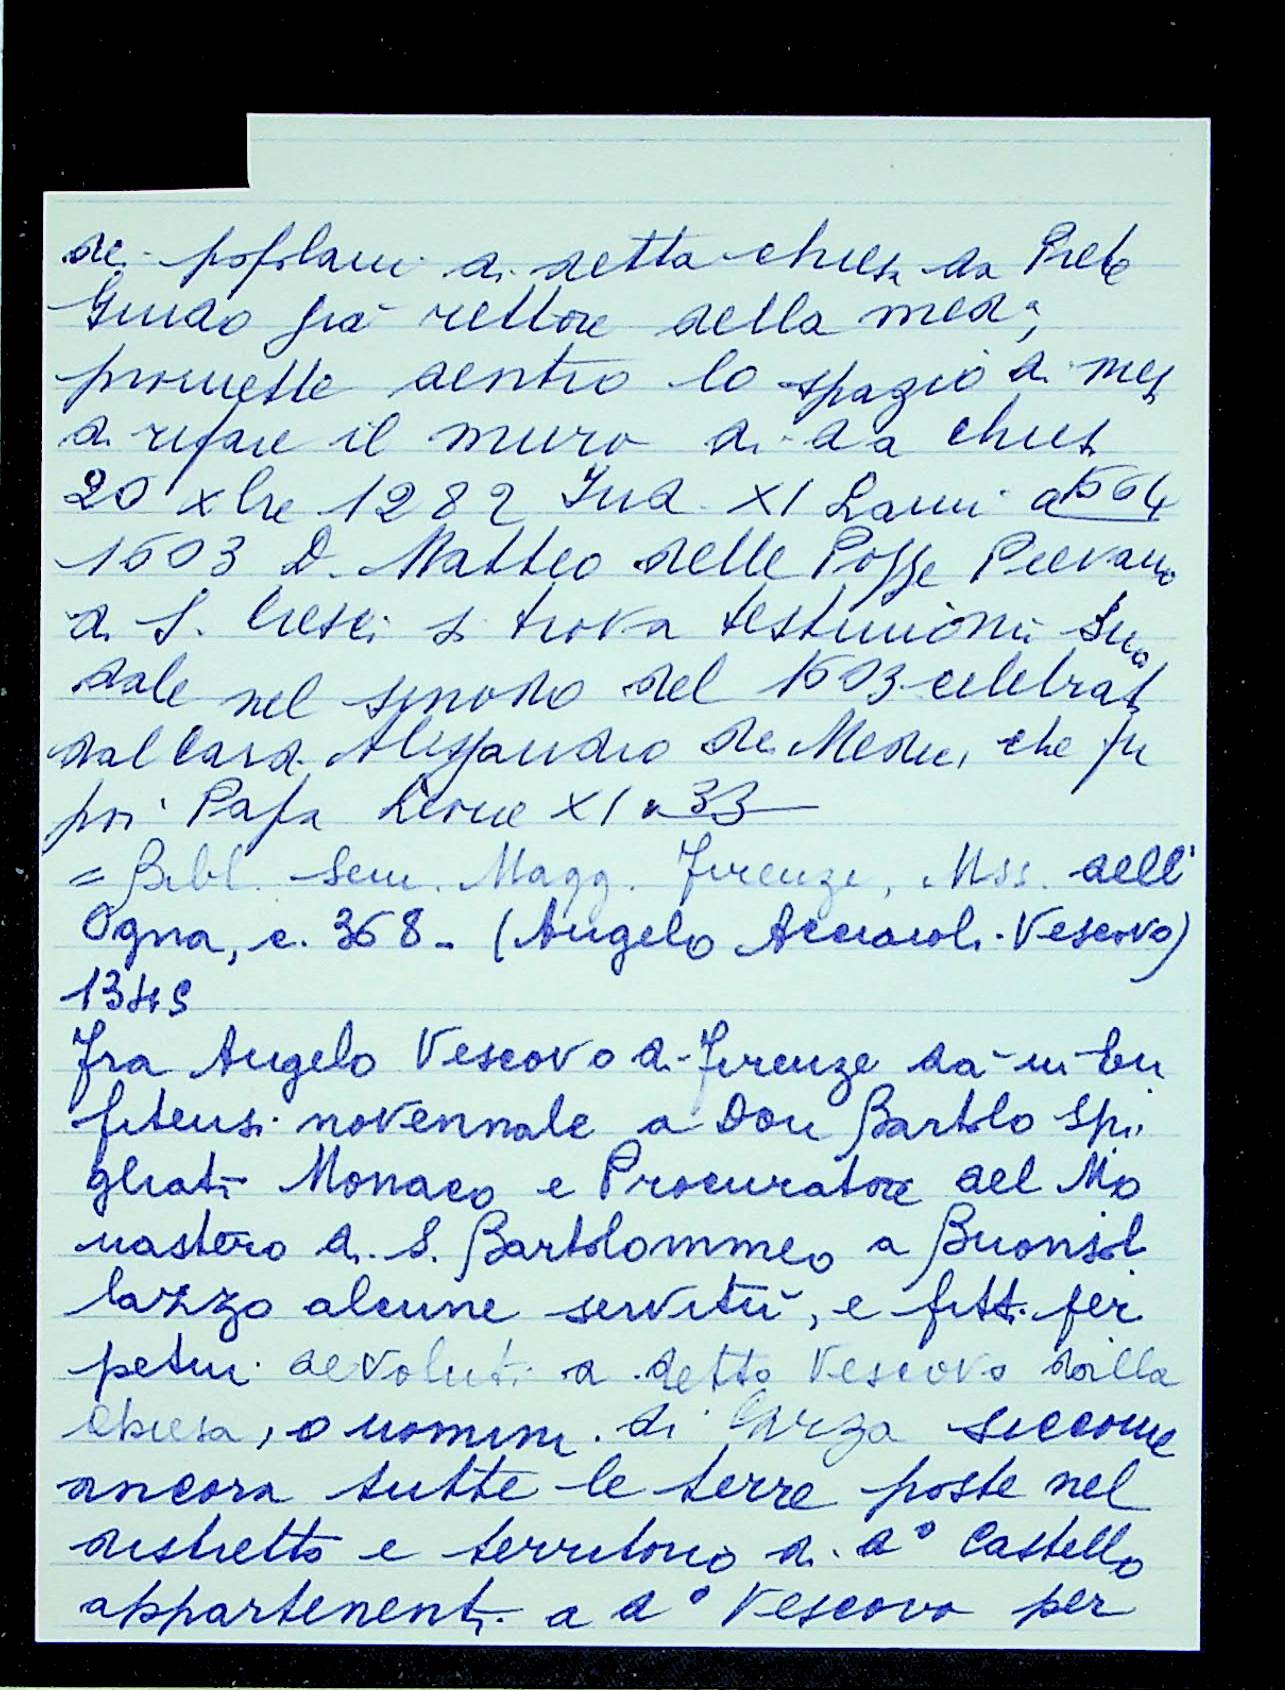 dei popolani di detta chiesa da Prete
Guido già rettore della meda,
promette dentro lo spazio di mesi
di rifare il muro di da chiesa
20 xbre 1282 Ind. XI Lami a 564
1603 D. Matteo delle Pozze Pievano
di S. Cresci si trova testimoni Sino
dale nel sinodo del 1603 celebrato
dal Card. Alessandro de Medici, che fu
poi Papa Leone XI a 33
= Bibl. Sem. Magg. Firenze, Mss. dell'
Ogna, c. 368 - (Angelo Acciaioli - Vescovo)
1349
Fra Angelo Vescovo di Firenze dà in En
fiteusi novennale a Don Bartolo Spi
gliati Monaco e Procuratore del Mo
nastero di S. Bartolommeo a Buonsol
lazzo alcune servitù, e fitti per
petui devoluti a detto Vescovo dalla
Chiesa, o uomini di Carza siccome
ancora tutte le terre poste nel
distretto e territorio di do Castello
appartenenti a do Vescovo per